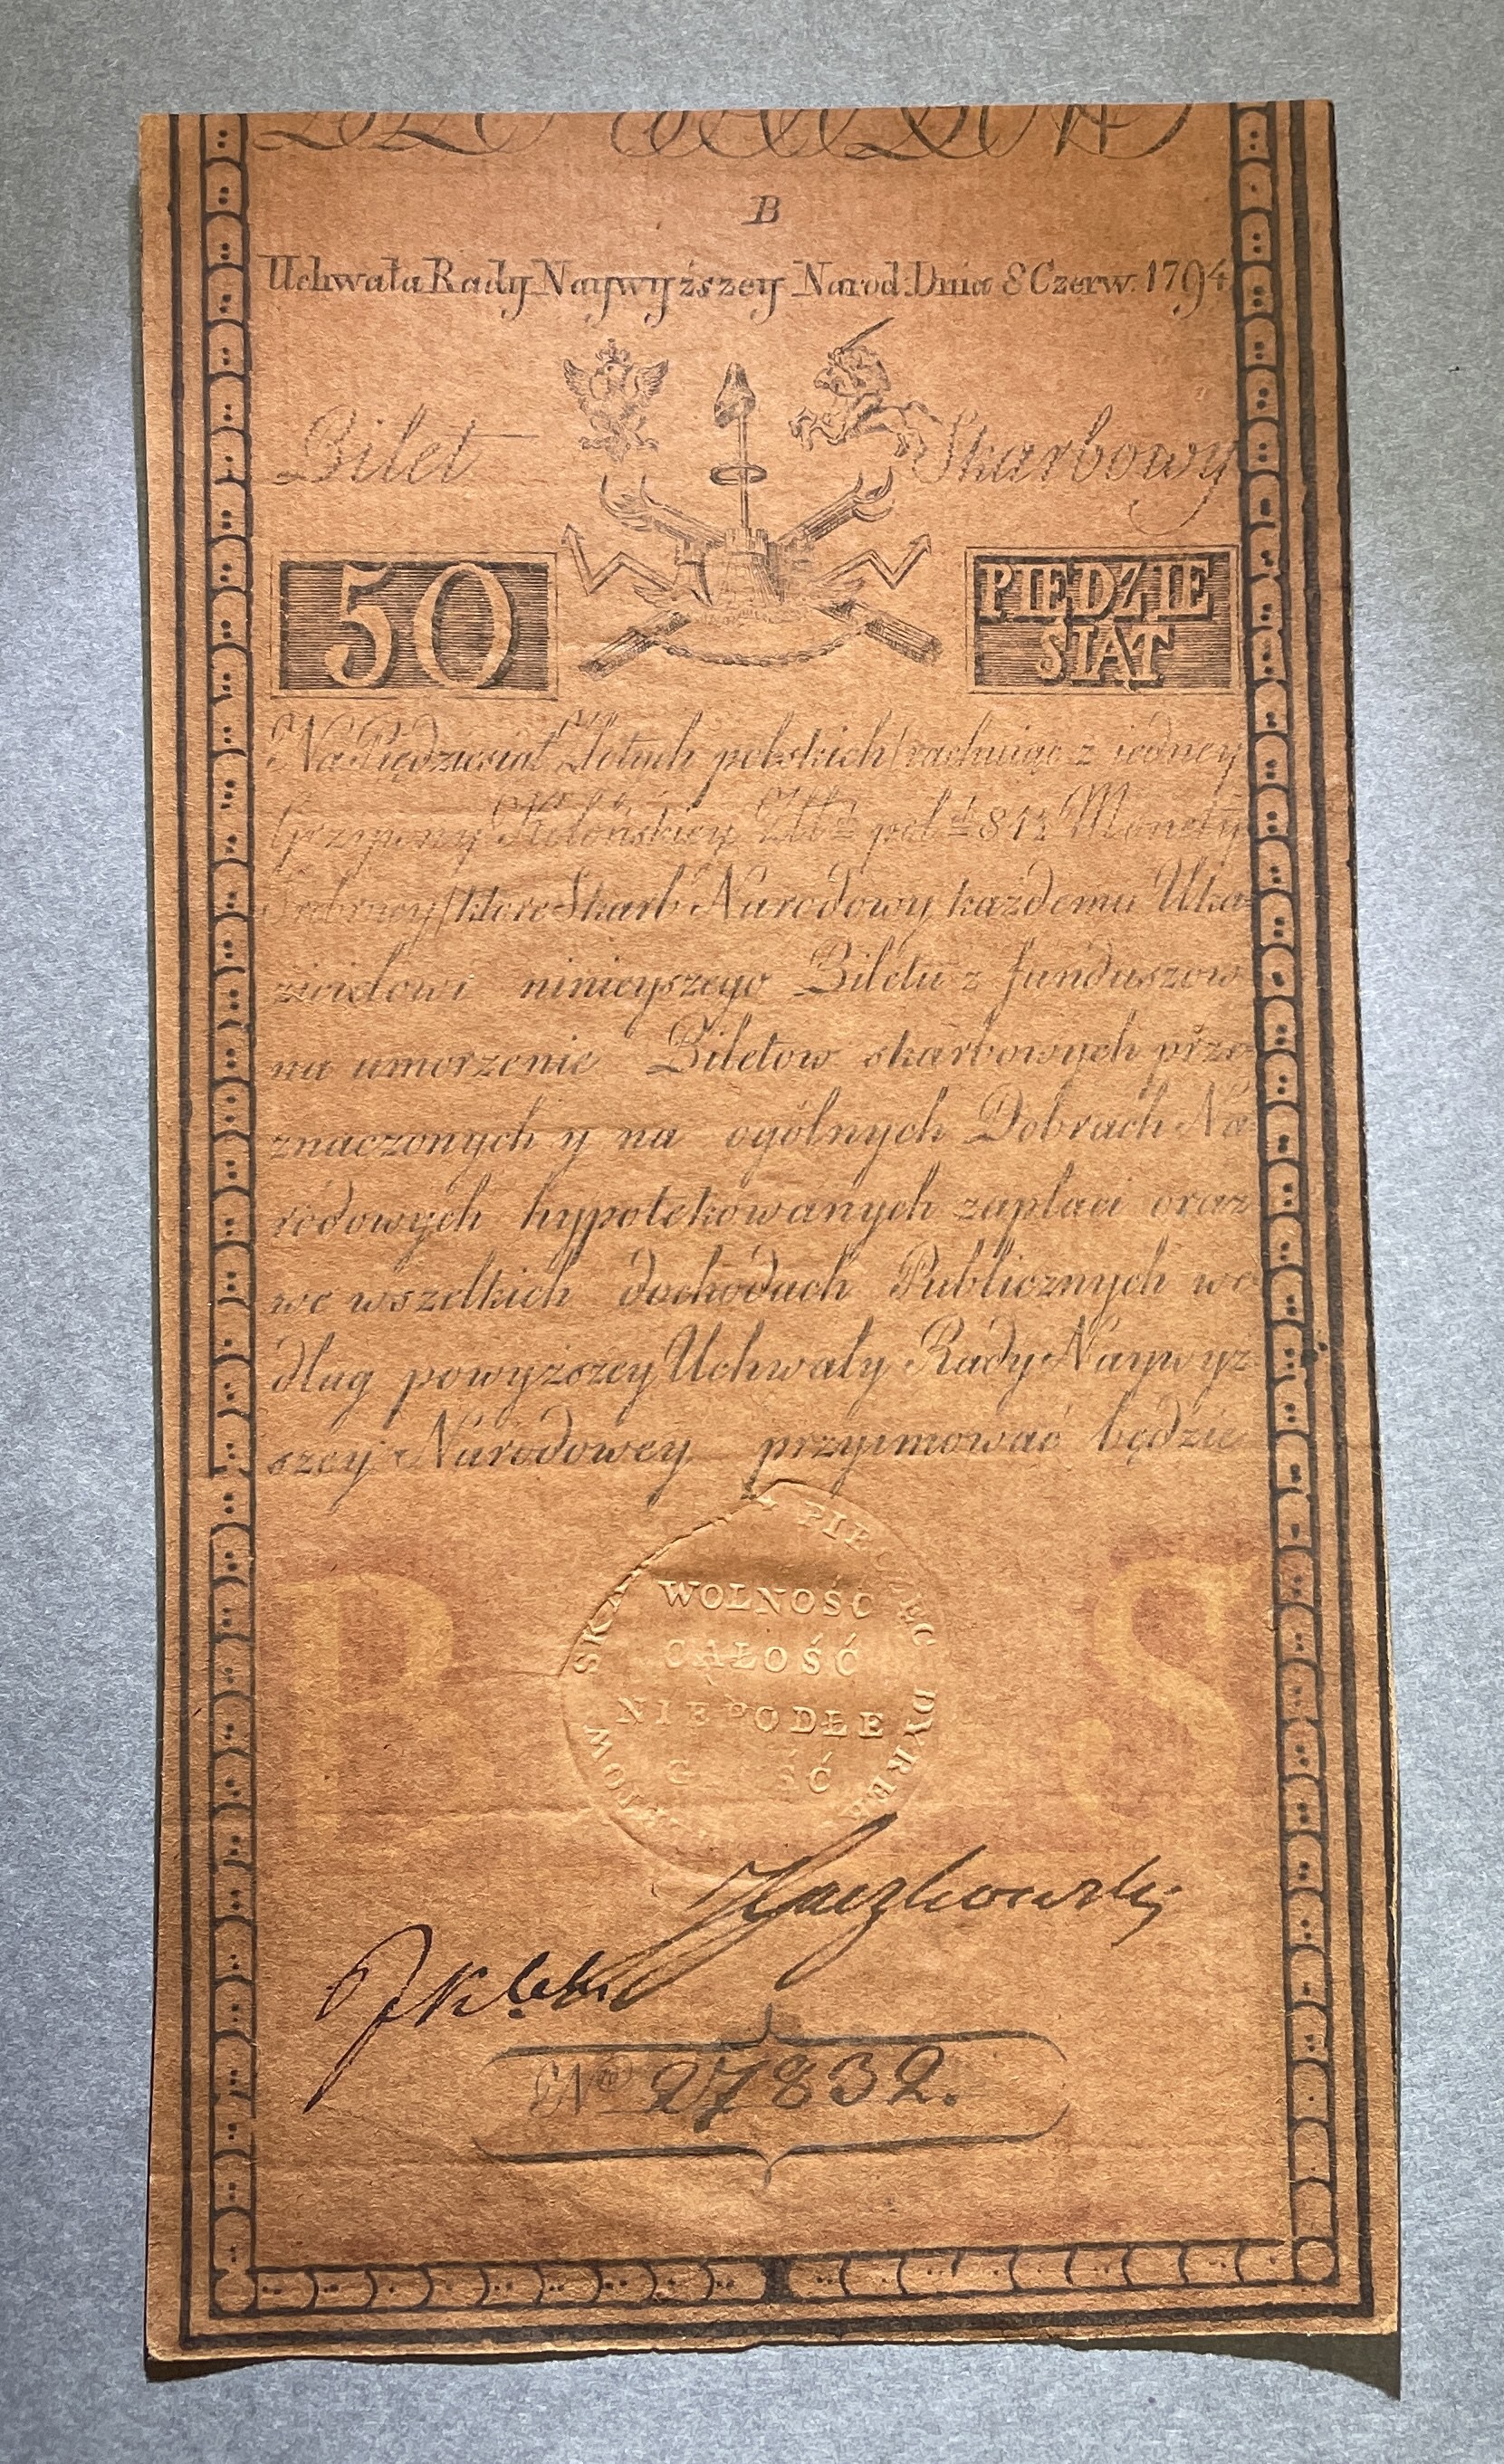 B
Uchwała Rady Naywyższey Narod: Dnia 8 Czerw. 1794
Bilet Skarbowy
50 PIĘDZIE
SIĄT
Na Piędziesiąt Złotych polskich/rachuiąc z iedney
Grzywny Kolońskiey Złt: pol: 84½ Monety
Srebrney/które Skarb Narodowy każdemu Uka=
zicielowi ninieyszego Biletu z funduszow
na umorzenie Biletow skarbowych prze
znaczonych y na ogólnych Dobrach Na
rodowych hypotekowanych zapłaci oraz
we wszelkich dochodach Publicznych we
dług powyższey Uchwały Rady Naywyż=
szey Narodowey przyimować będzie
PIECZĘĆ DYREK
SKA
WOLNOŚĆ
CAŁOŚĆ
NIEPODLE
G ŚĆ
B S
Zaczkowski
No 27832.